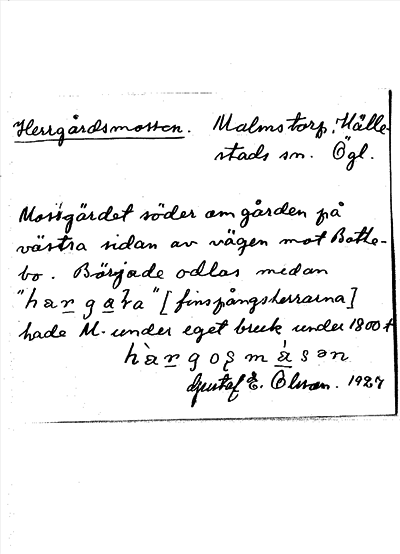 Herrgårdsmossen. Malmstorp, Hälle-
stads sn. Ögl.
Mossgärdet söder om gården på
västra sidan av vägen mot Botte-
bo. Började odlas medan
"hargara" [finspångsherrarna]
hade M. under eget bruk under 1800 t
hàrgosmásən
Gustaf E. Olsson. 1927